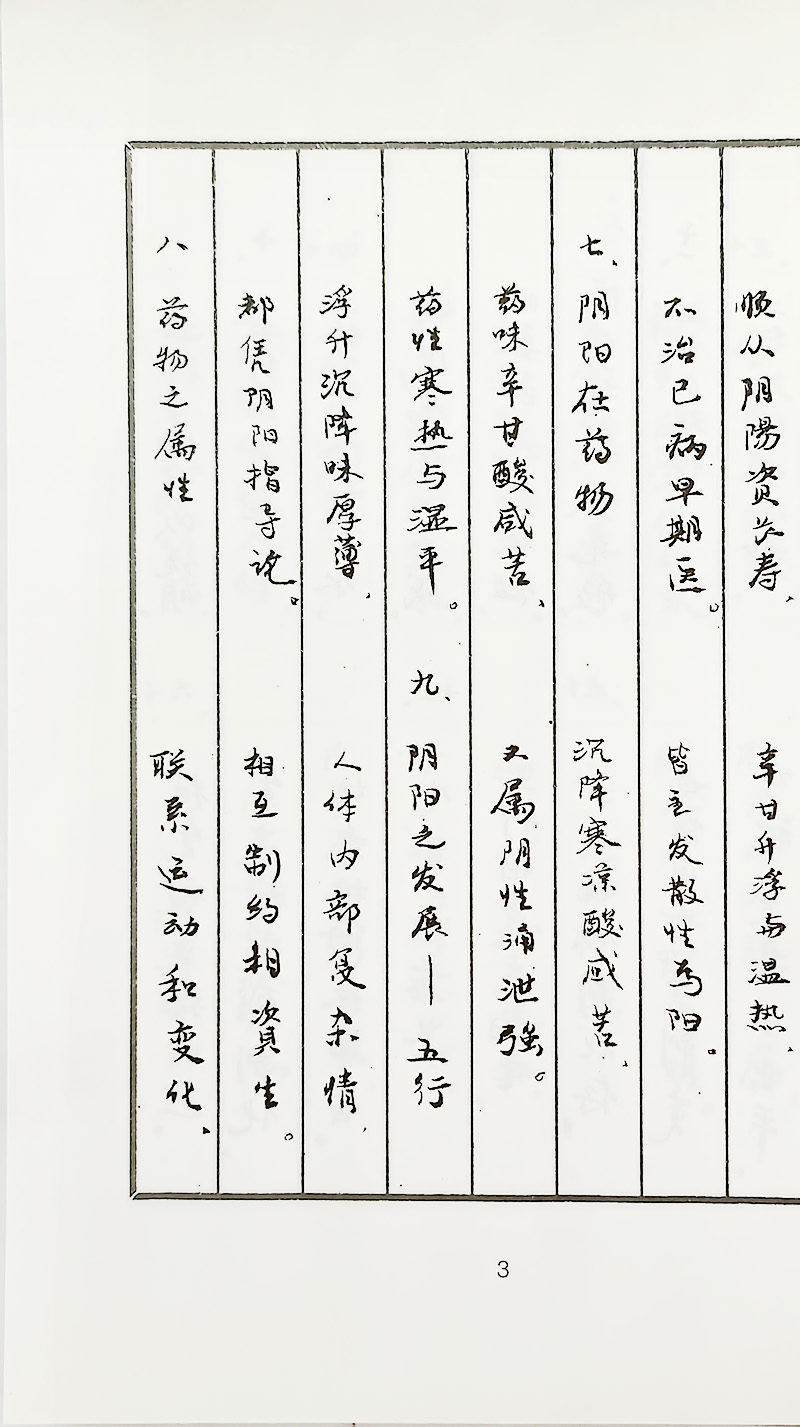 顺从阴陽资长寿、
不治已病早期医。
七、阴阳在药物
药味辛甘酸咸苦、
药性寒热与湿平。
浮升沉降味厚薄、
都凭阴阳指导论。
八 药物之属性
辛甘升浮与温热、
皆主发散性为阳。
沉降寒凉酸咸苦、
又属阴性涌泄强。
九、阴阳之发展—五行
人体内部复杂情、
相互制约相资生。
联系运动和变化、
3